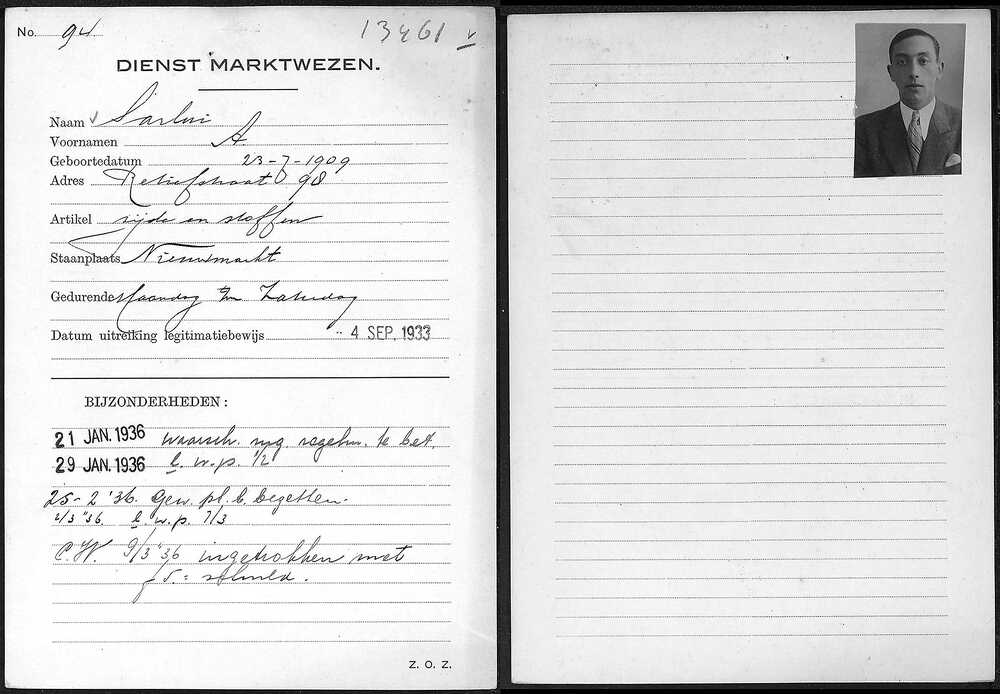 No. 94
13461 v
DIENST MARKTWEZEN.
Naam v Sarlui
Voornamen A.
Geboortedatum 23-7-1909
Adres Retiefstraat 98
Artikel zijde en stoffen
Staanplaats Nieuwmarkt
Gedurende Maandag t/m Zaterdag
Datum uitreiking legitimatiebewijs 4 SEP. 1933
BIJZONDERHEDEN:
21 JAN. 1936 waarsch. reg. te bet.
29 JAN. 1936 w.p. 1/2
25-2 '36. Gew. pl. b. bezetten.
2/3 '36. w.p. 7/3
C.W. 9/3 '36 ingetrokken met
f 5.= schuld.
Z. O. Z.